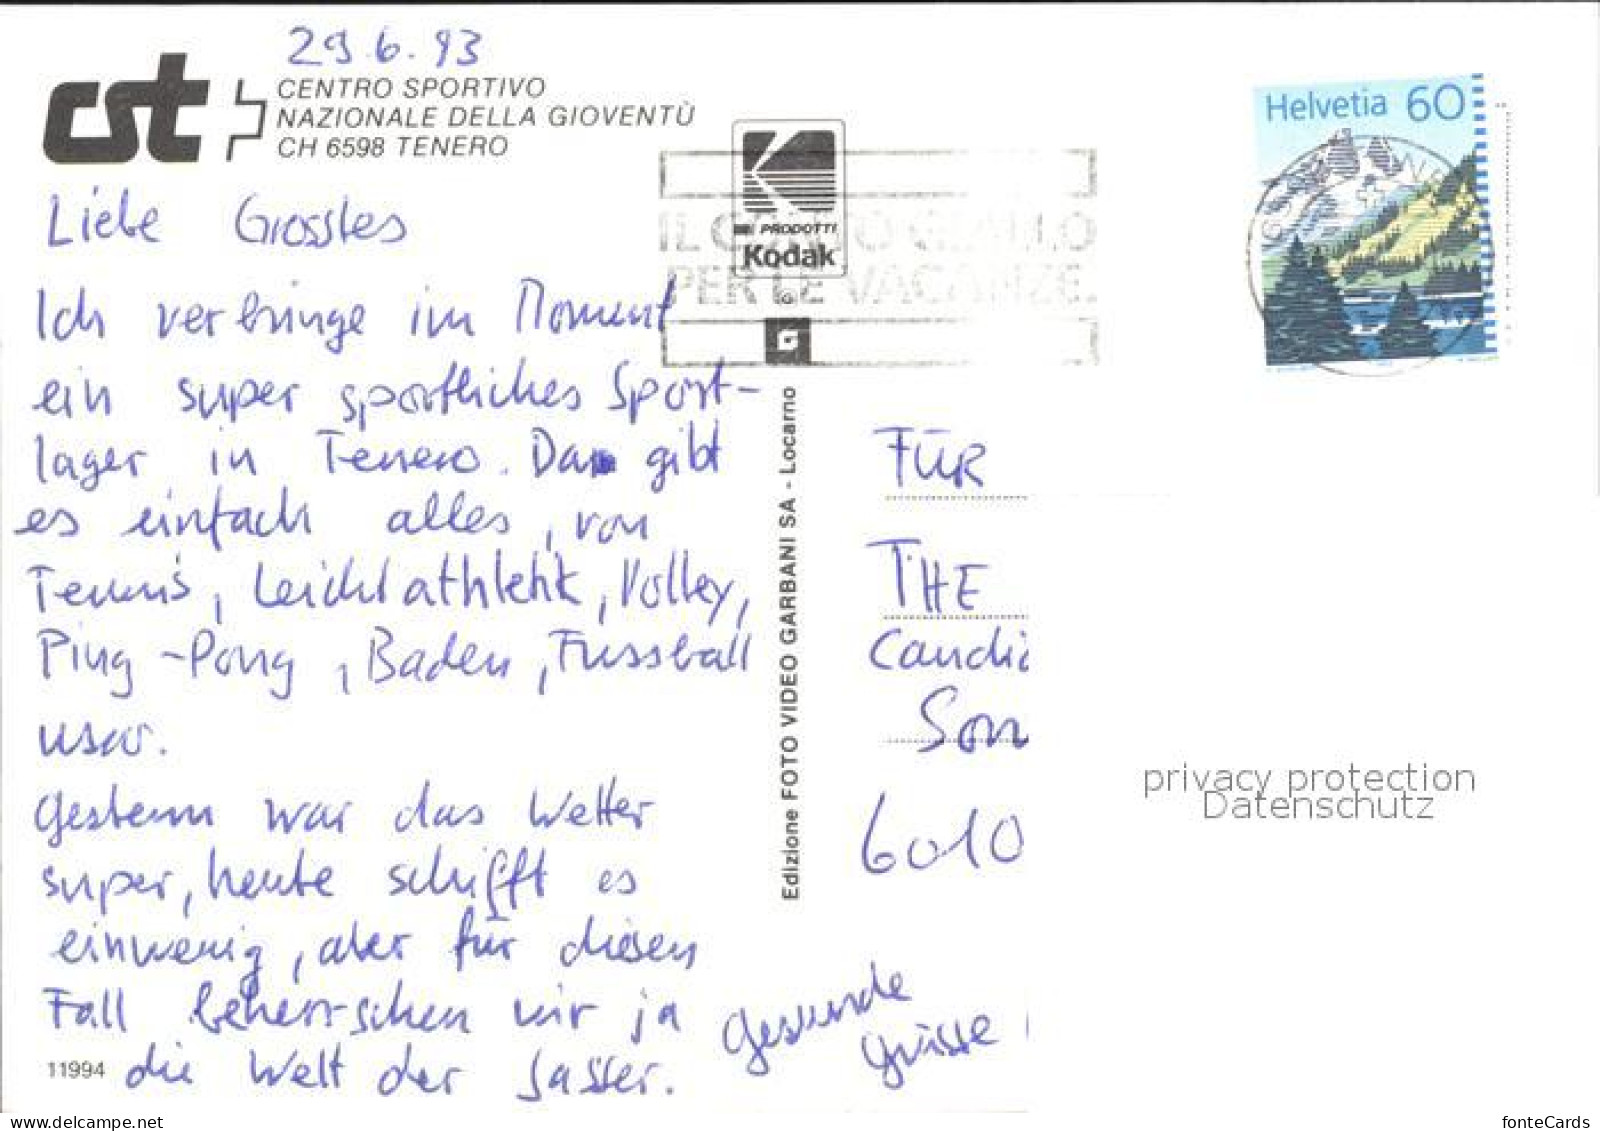 29.6.93
cst
CENTRO SPORTIVO
NAZIONALE DELLA GIOVENTÙ
CH 6598 TENERO
Liebe Grossles
Ich verbringe im Moment
ein super sportliches Sport-
lager in Tenero. Da gibt
es einfach alles, von
Tennis, Leichtathletik, Volley,
Ping-Pong, Baden, Fussball
usw.
Gestern war das Wetter
super, heute schifft es
einwenig, aber für diesen
Fall beherrschen wir ja
die Welt der Jasser.
Gesunde
Grüsse
11994
K
PRODOTTI
Kodak
G
Edizione FOTO VIDEO GARBANI SA - Locarno
IL GIALLO
PER LE VACANZE
Helvetia 60
FÜR
THE
Candi
Son
6010
privacy protection
Datenschutz
fonteCards